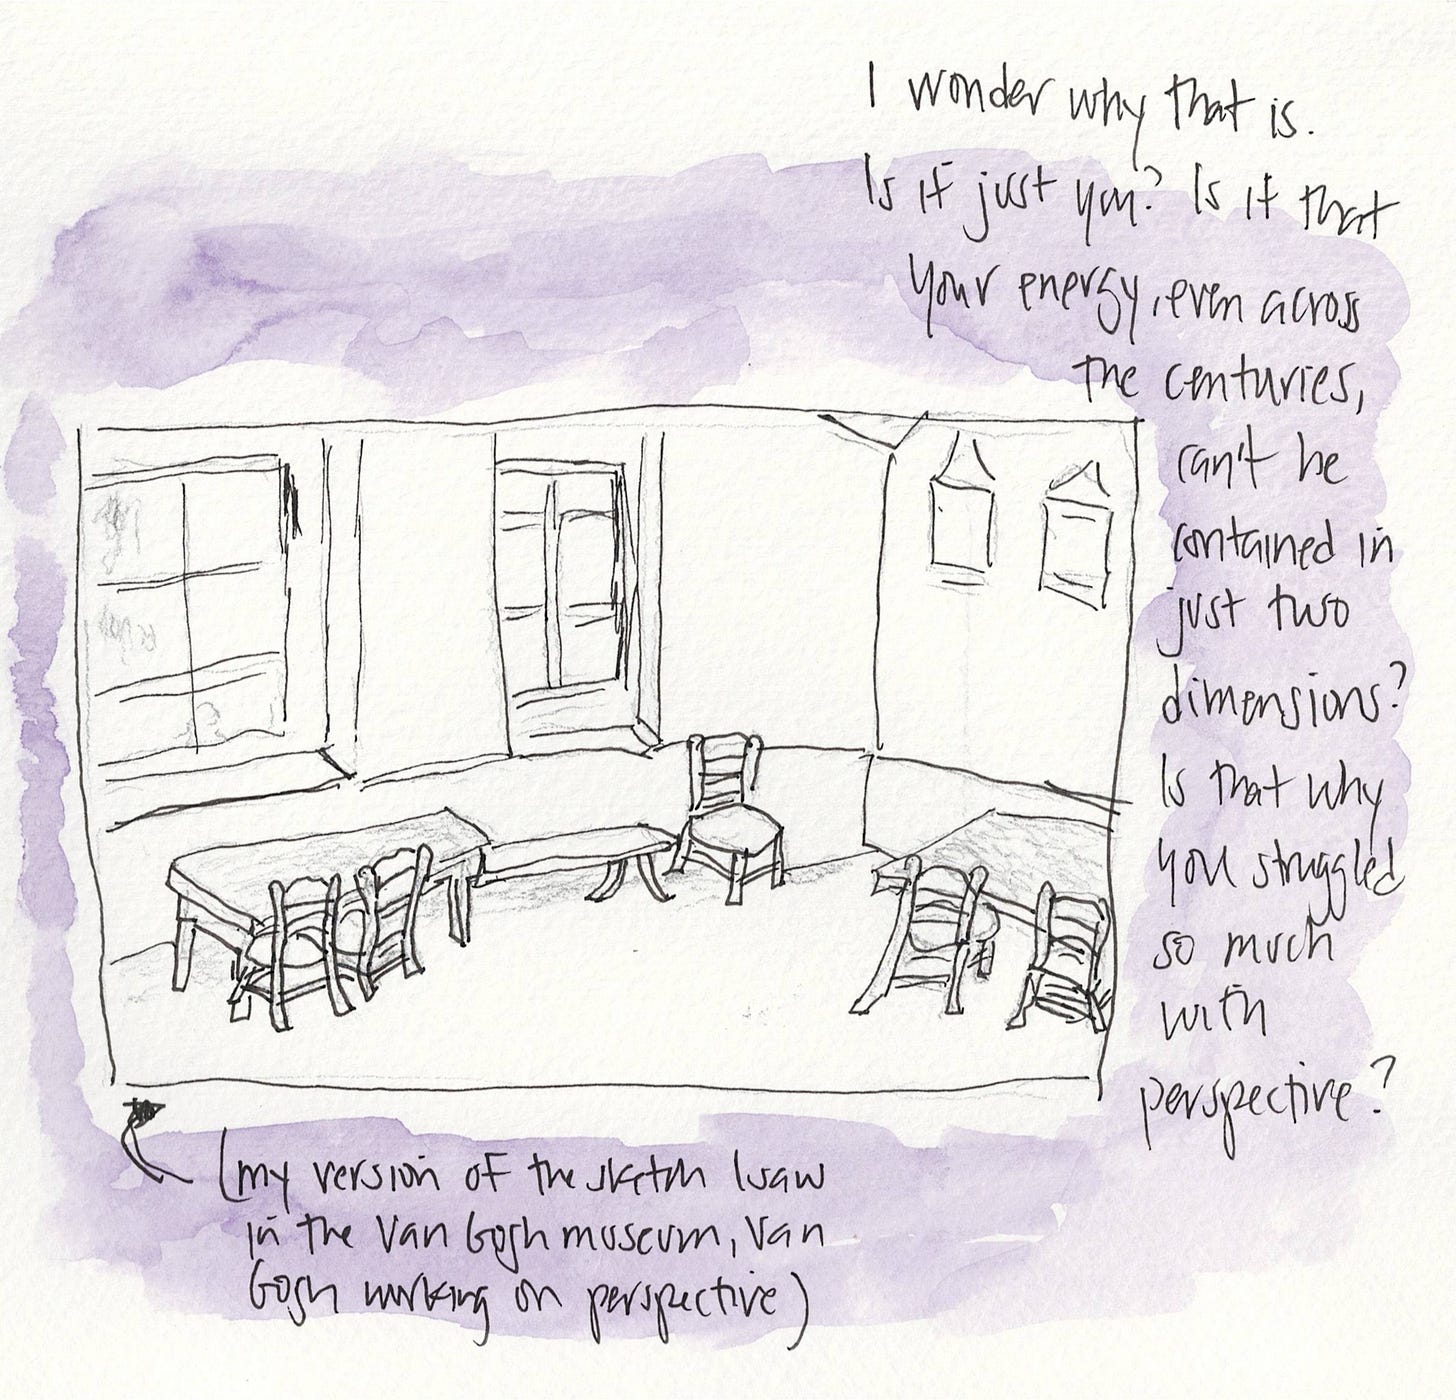 I wonder why that is.
Is it just you? Is it that
your energy, even across
the centuries,
can't be
contained in
just two
dimensions?
Is that why
you struggled
so much
with
perspective?
(my version of the sketch I saw
in the Van Gogh museum, Van
Gogh working on perspective)